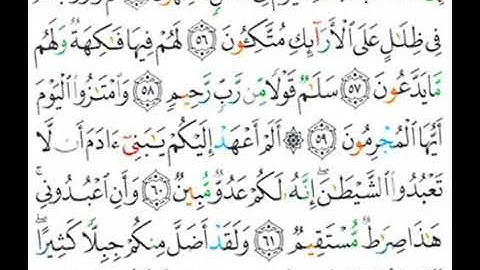 فِى ظِلَٰلٍ عَلَى ٱلْأَرَآئِكِ مُتَّكِـُٔونَ ٥٦ لَهُمْ فِيهَا فَٰكِهَةٌ وَلَهُم
مَّا يَدَّعُونَ ٥٧ سَلَٰمٌ قَوْلًا مِّن رَّبٍّ رَّحِيمٍ ٥٨ وَٱمْتَٰزُوا۟ ٱلْيَوْمَ
أَيُّهَا ٱلْمُجْرِمُونَ ٥٩ ۞ أَلَمْ أَعْهَدْ إِلَيْكُمْ يَٰبَنِىٓ ءَادَمَ أَن لَّا
تَعْبُدُوا۟ ٱلشَّيْطَٰنَ ۖ إِنَّهُۥ لَكُمْ عَدُوٌّ مُّبِينٌ ٦٠ وَأَنِ ٱعْبُدُونِى ۚ
هَٰذَا صِرَٰطٌ مُّسْتَقِيمٌ ٦١ وَلَقَدْ أَضَلَّ مِنكُمْ جِبِلًّا كَثِيرًا ۖ